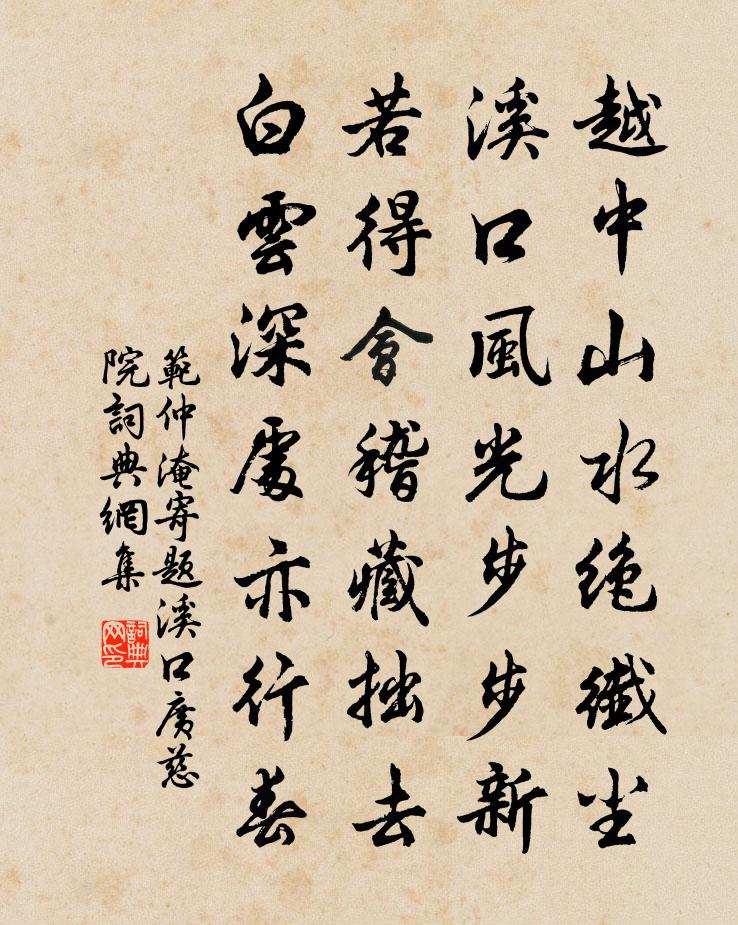 越中山水绝纖尘
溪口風光步步新
若得會稽藏拙去
白雲深處亦行春
範仲淹寄题溪口廣慈
院詞典網集
詞典网印